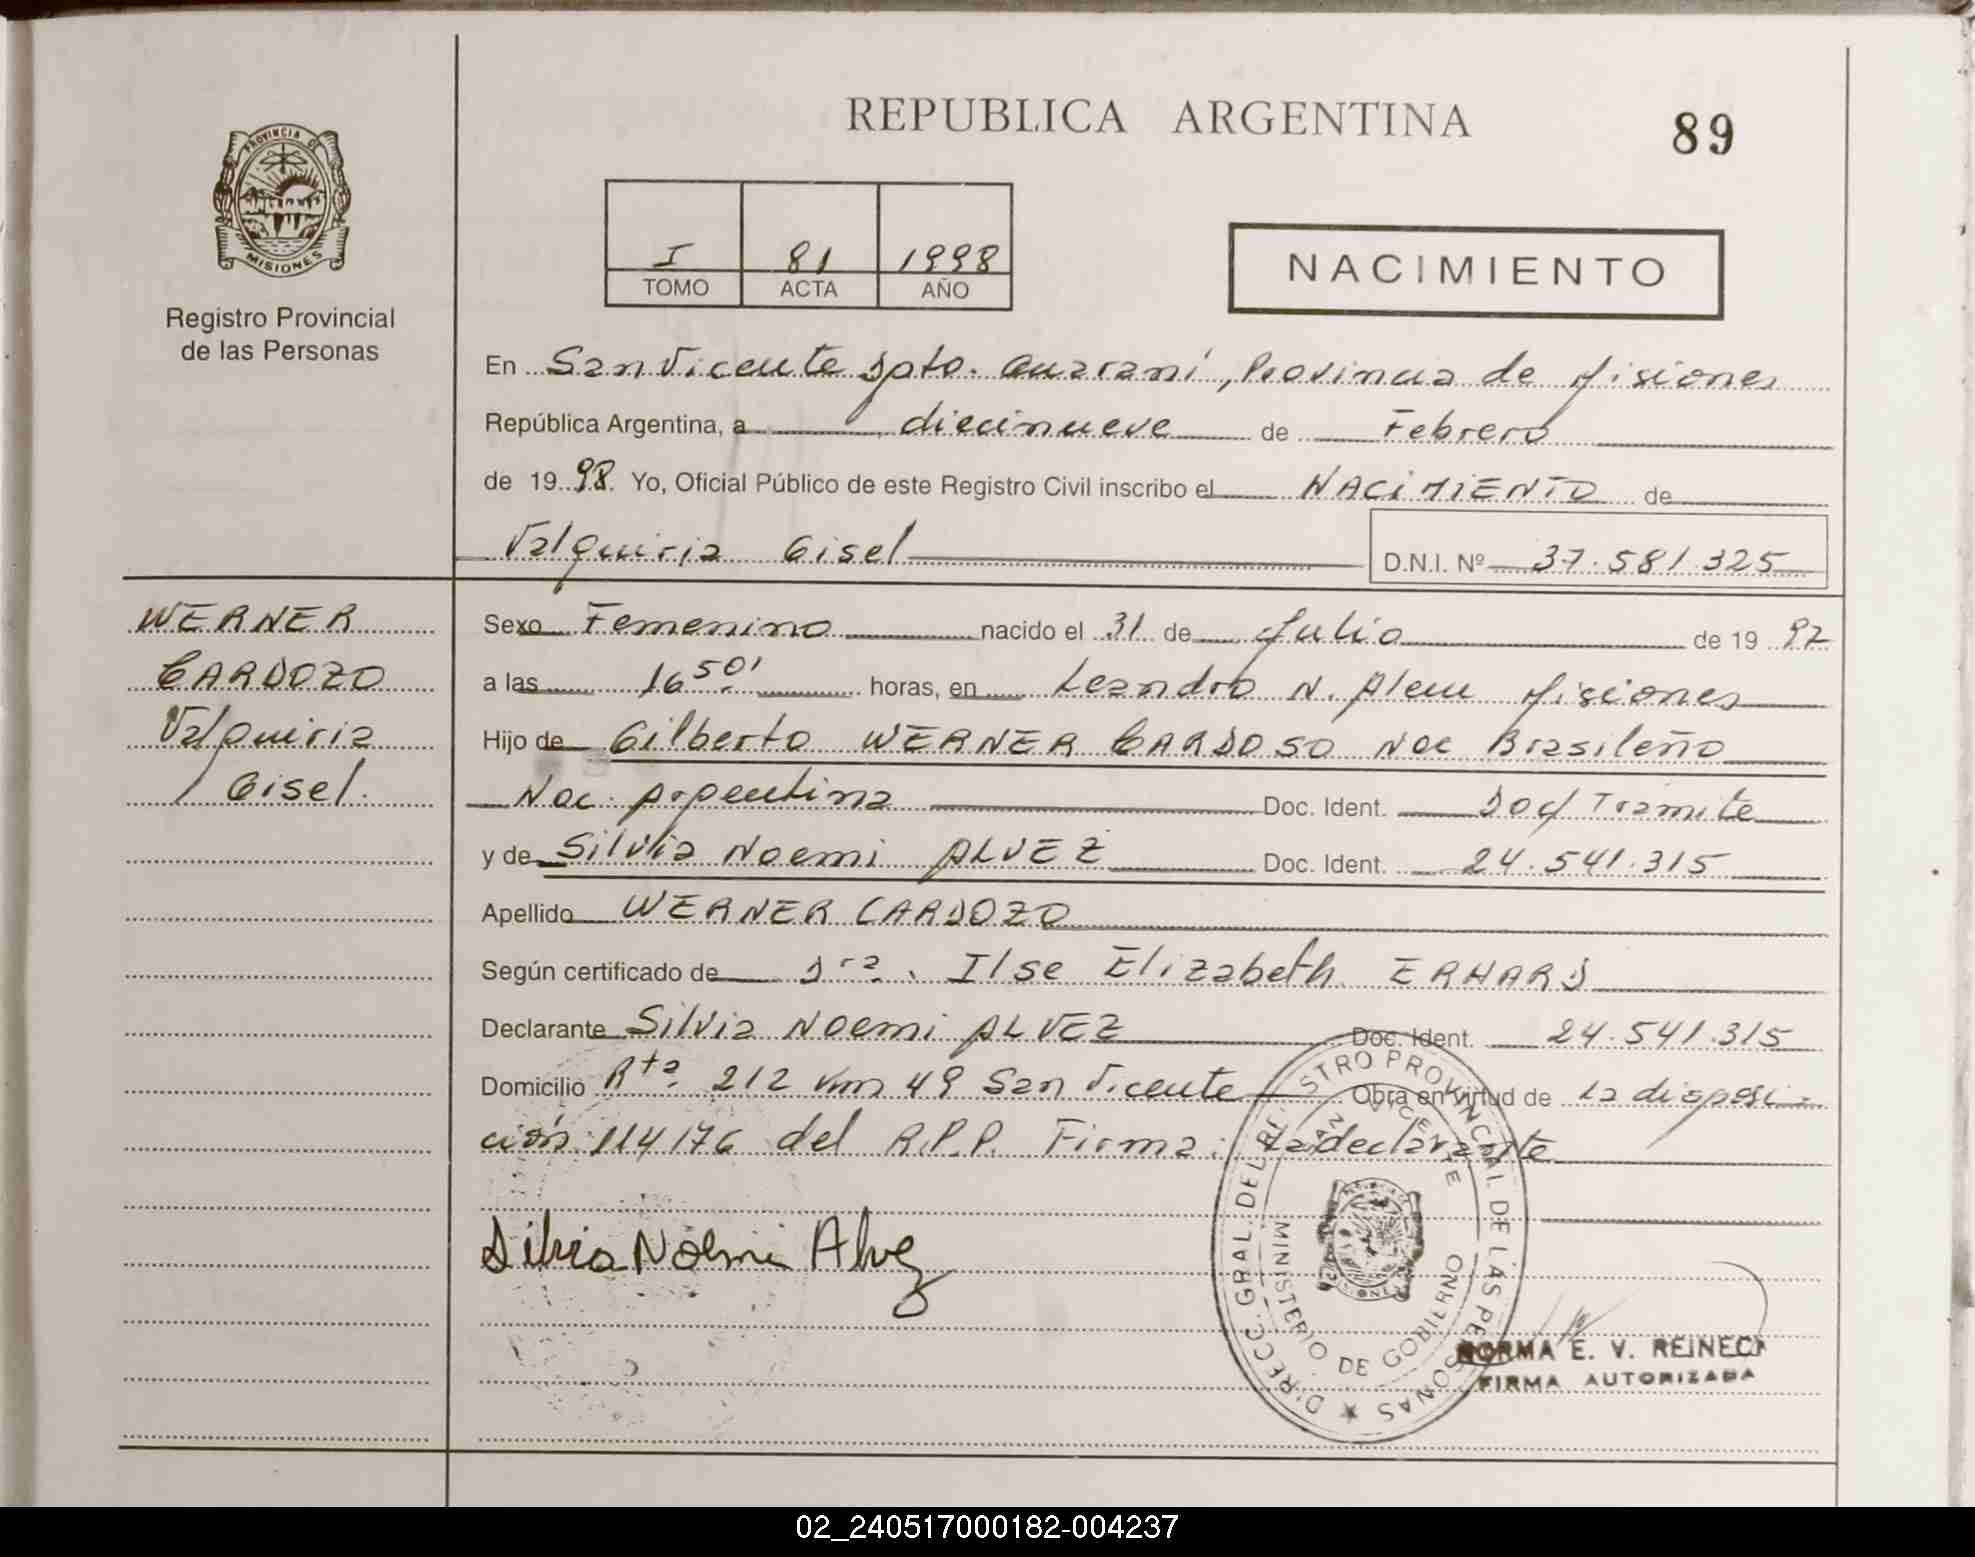 REPUBLICA ARGENTINA
89
PROVINCIA DE
MISIONES
Registro Provincial
de las Personas
I 81 1998
TOMO ACTA AÑO
NACIMIENTO
En San Vicente Dpto. Guaraní, Provincia de Misiones
República Argentina, a diecinueve de Febrero
de 1998. Yo, Oficial Público de este Registro Civil inscribo el NACIMIENTO de
Valquiria Gisel D.N.I. Nº 37.581.325
WERNER
CARDOZO
Valquiria
Gisel.
Sexo Femenino nacido el 31 de Julio de 1997
a las 16 50' horas, en Leandro N. Alem Misiones
Hijo de Gilberto WERNER CARDOSO Nac Brasileño
Nac. Argentina Doc. Ident. Doc/ Tramite
y de Silvia Noemi ALVEZ Doc. Ident. 24.541.315
Apellido WERNER CARDOZO
Según certificado de Dra. Ilse Elizabeth ERHARD
Declarante Silvia Noemi ALVEZ Doc. Ident. 24.541.315
Domicilio Rta. 212 Km 49 San Vicente Obra en virtud de la disposi-
ción 114/76 del R.P.P. Firma: La declarante
Silvia Noemi Alvez
DIRECC. GRAL. DEL REGISTRO PROVINCIAL DE LAS PERSONAS
SAN VICENTE
MINISTERIO DE GOBIERNO
NORMA E. V. REINECK
FIRMA AUTORIZADA
02_240517000182-004237